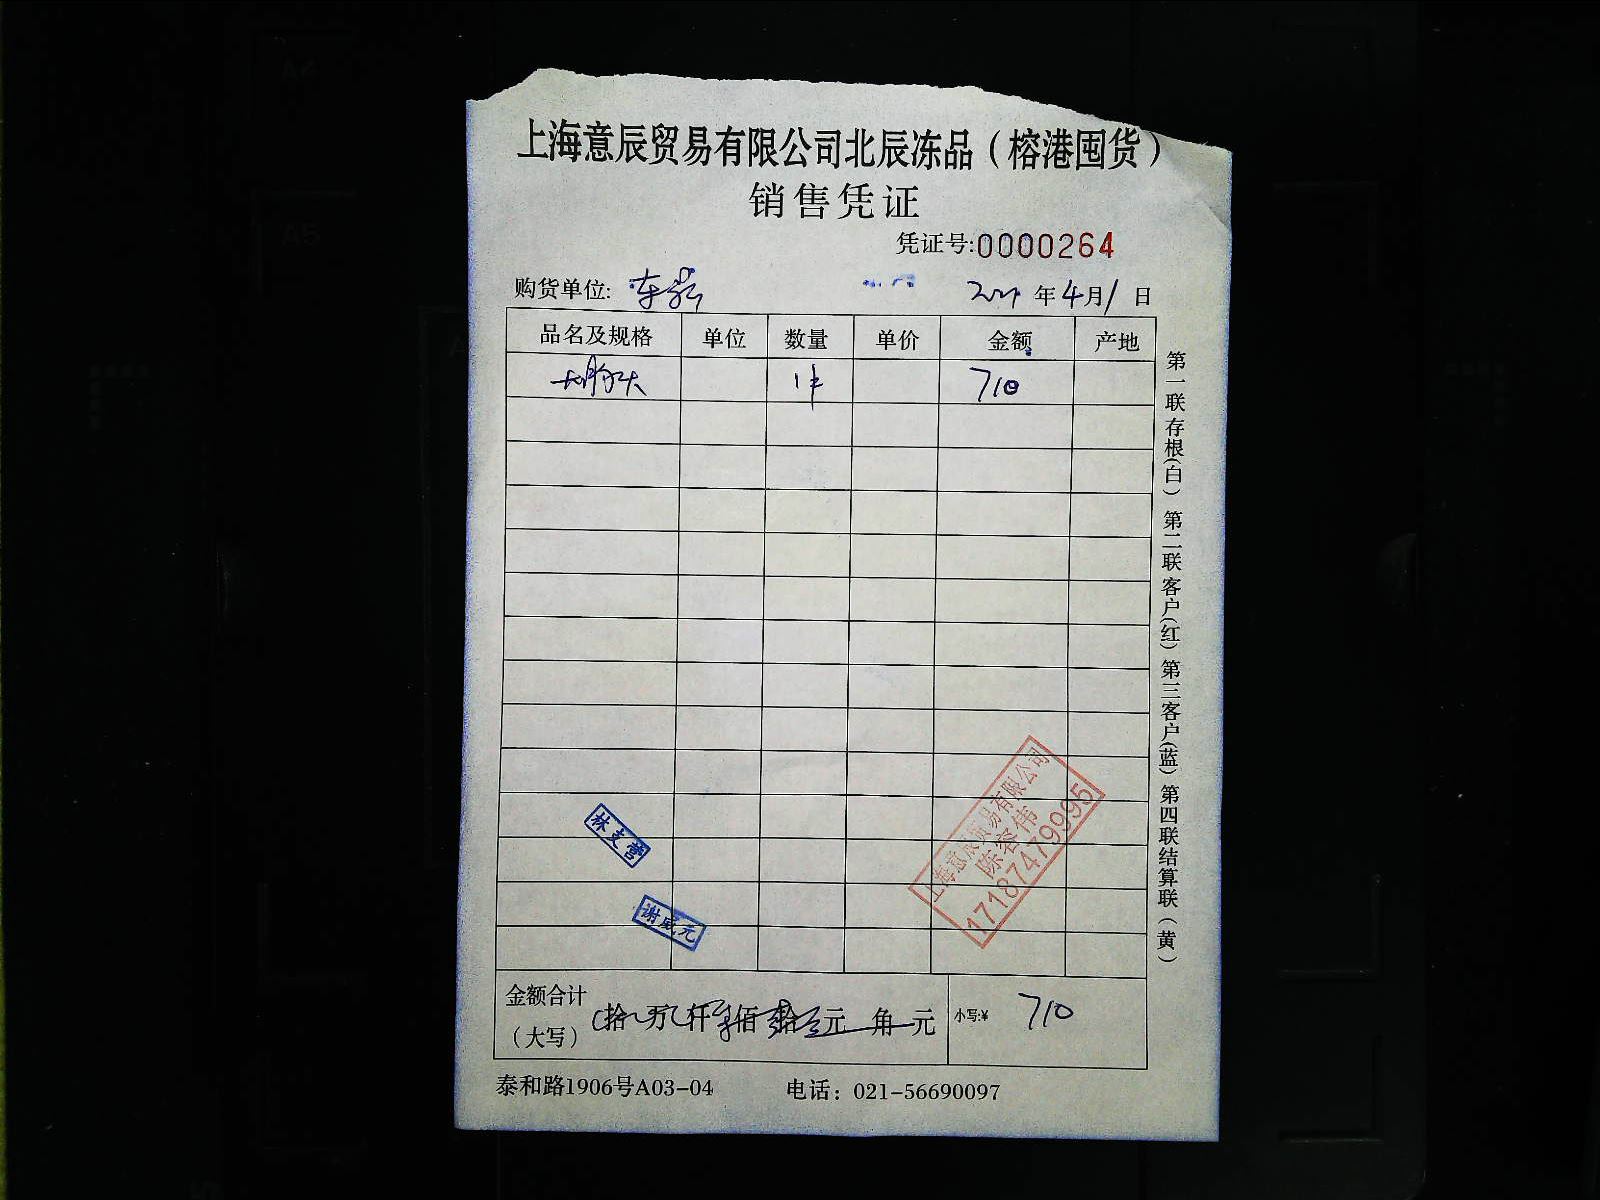 上海意辰贸易有限公司北辰冻品（榕港囤货）
销售凭证
凭证号:0000264
购货单位: 东
年4月1日
品名及规格 单位 数量 单价 金额 产地
1件 710
第一联存根(白) 第二联客户(红) 第三客户(蓝) 第四联结算联（黄）
上海意辰贸易有限公司
陈容伟
17187479995
林支营
谢威元
金额合计
（大写） 拾 万 仟 佰 拾 元 角 元 小写:¥ 710
泰和路1906号A03-04 电话：021-56690097